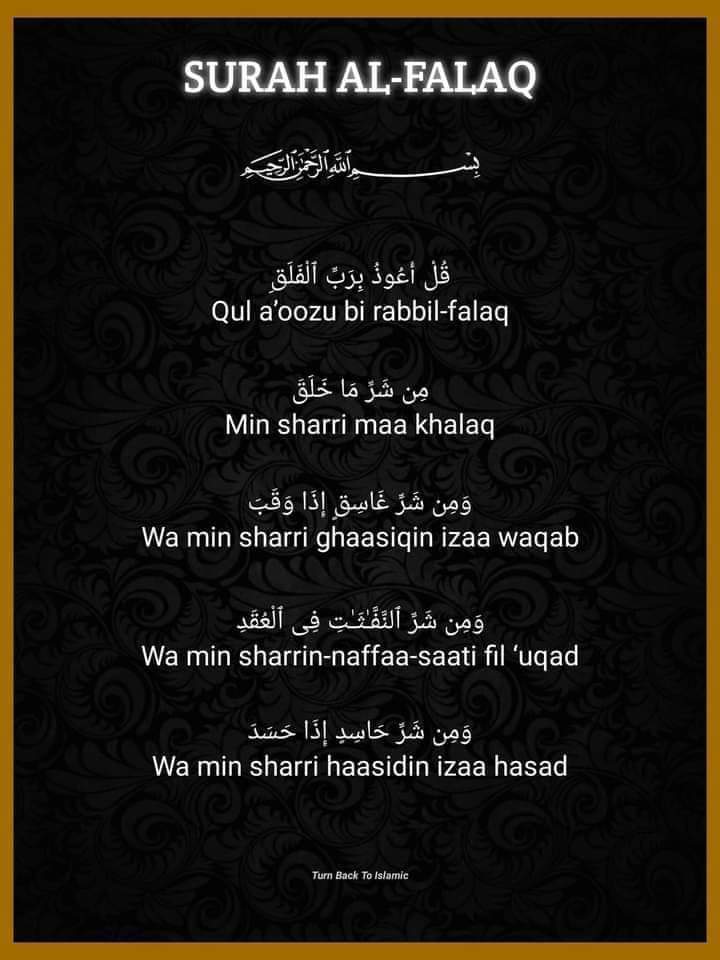 SURAH AL-FALAQ
بِسْمِ اللَّهِ الرَّحْمَٰنِ الرَّحِيمِ
قُلْ أَعُوذُ بِرَبِّ ٱلْفَلَقِ
Qul a’oozu bi rabbil-falaq
مِن شَرِّ مَا خَلَقَ
Min sharri maa khalaq
وَمِن شَرِّ غَاسِقٍ إِذَا وَقَبَ
Wa min sharri ghaasiqin izaa waqab
وَمِن شَرِّ ٱلنَّفَّـٰثَـٰتِ فِى ٱلْعُقَدِ
Wa min sharrin-naffaa-saati fil ‘uqad
وَمِن شَرِّ حَاسِدٍ إِذَا حَسَدَ
Wa min sharri haasidin izaa hasad
Turn Back To Islamic